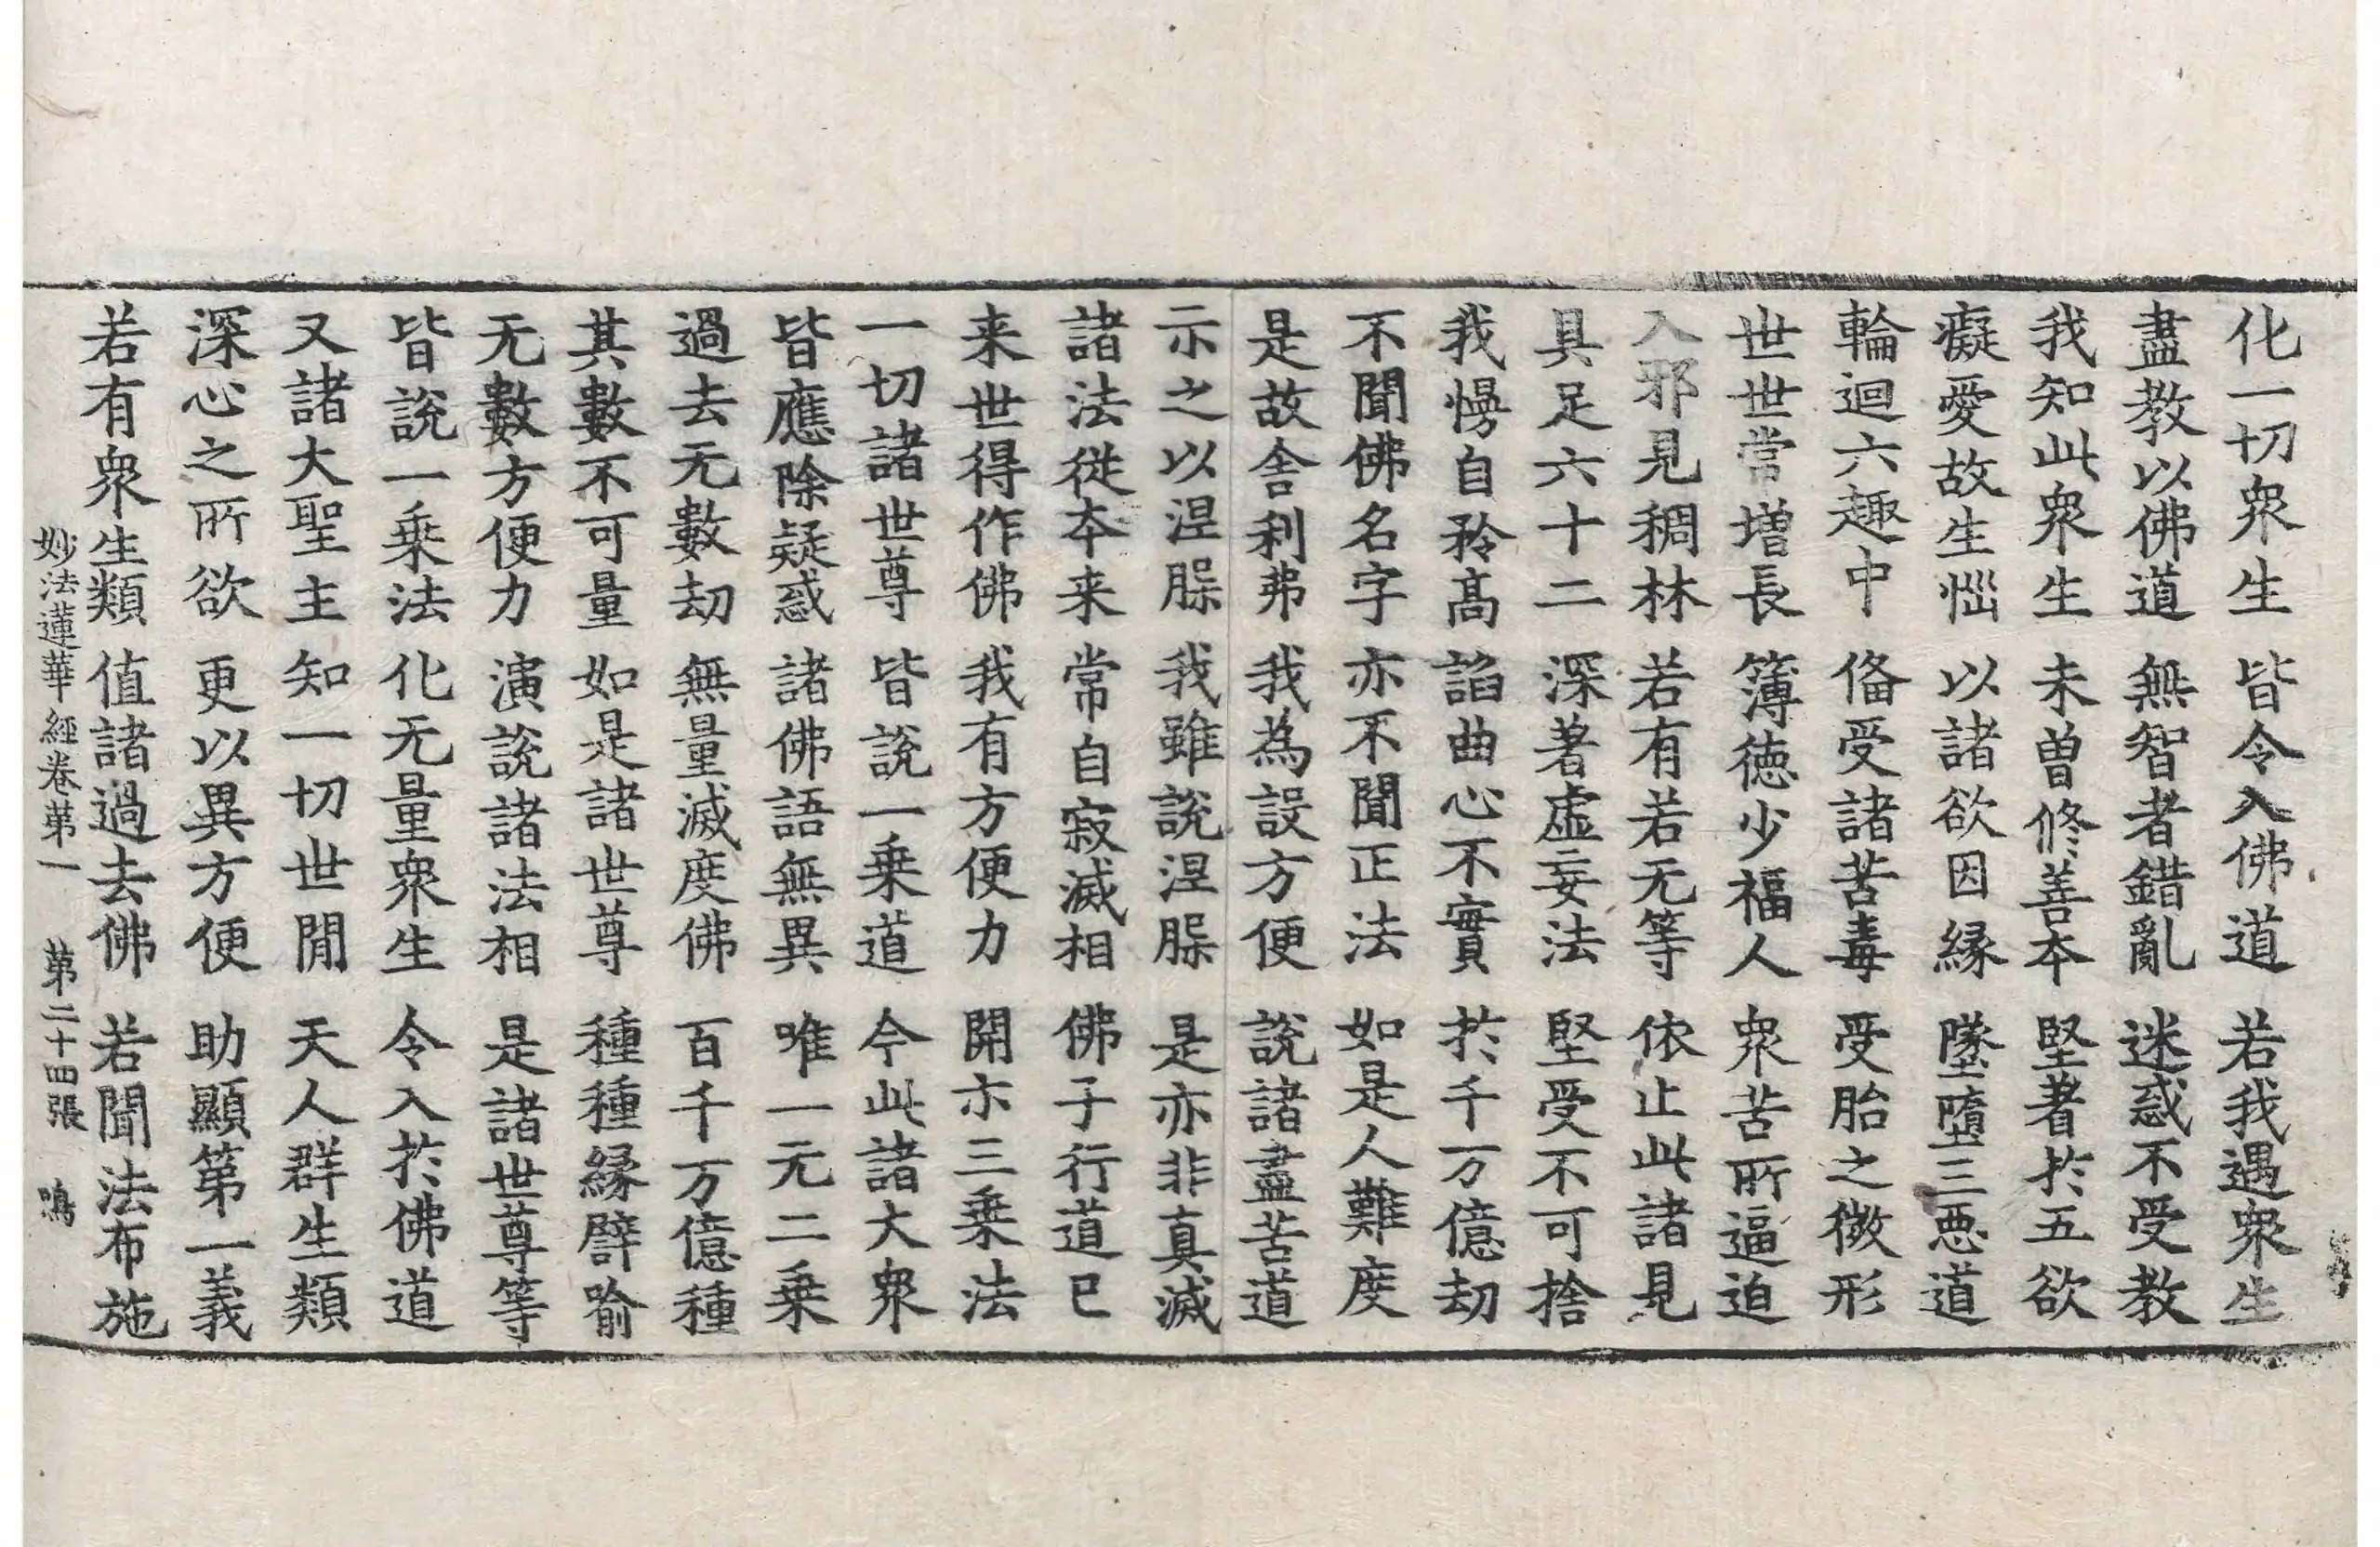 化一切衆生　皆令入佛道　若我遇衆生
盡教以佛道　無智者錯亂　迷惑不受教
我知此衆生　未曽修善本　堅著於五欲
癡愛故生惱　以諸欲因緣　墜墮三惡道
輪迴六趣中　俻受諸苦毒　受胎之微形
世世常增長　簿德少福人　衆苦所逼迫
入邪見稠林　若有若无等　依止此諸見
具足六十二　深著虛妄法　堅受不可捨
我慢自矜髙　諂曲心不實　於千万億劫
不聞佛名字　亦不聞正法　如是人難度
是故舍利弗　我為設方便　說諸盡苦道
示之以涅槃　我雖說涅槃　是亦非真滅
諸法從本来　常自寂滅相　佛子行道已
来世得作佛　我有方便力　開示三乗法
一切諸世尊　皆說一乗道　今此諸大衆
皆應除疑惑　諸佛語無異　唯一无二乗
過去无數劫　無量滅度佛　百千万億種
其數不可量　如是諸世尊　種種緣譬喻
无數方便力　演說諸法相　是諸世尊等
皆說一乗法　化无量衆生　令入於佛道
又諸大聖主　知一切世閒　天人群生類
深心之所欲　更以異方便　助顯第一義
若有衆生類　值諸過去佛　若聞法布施
妙法蓮華經卷第一　第二十四張　鳴